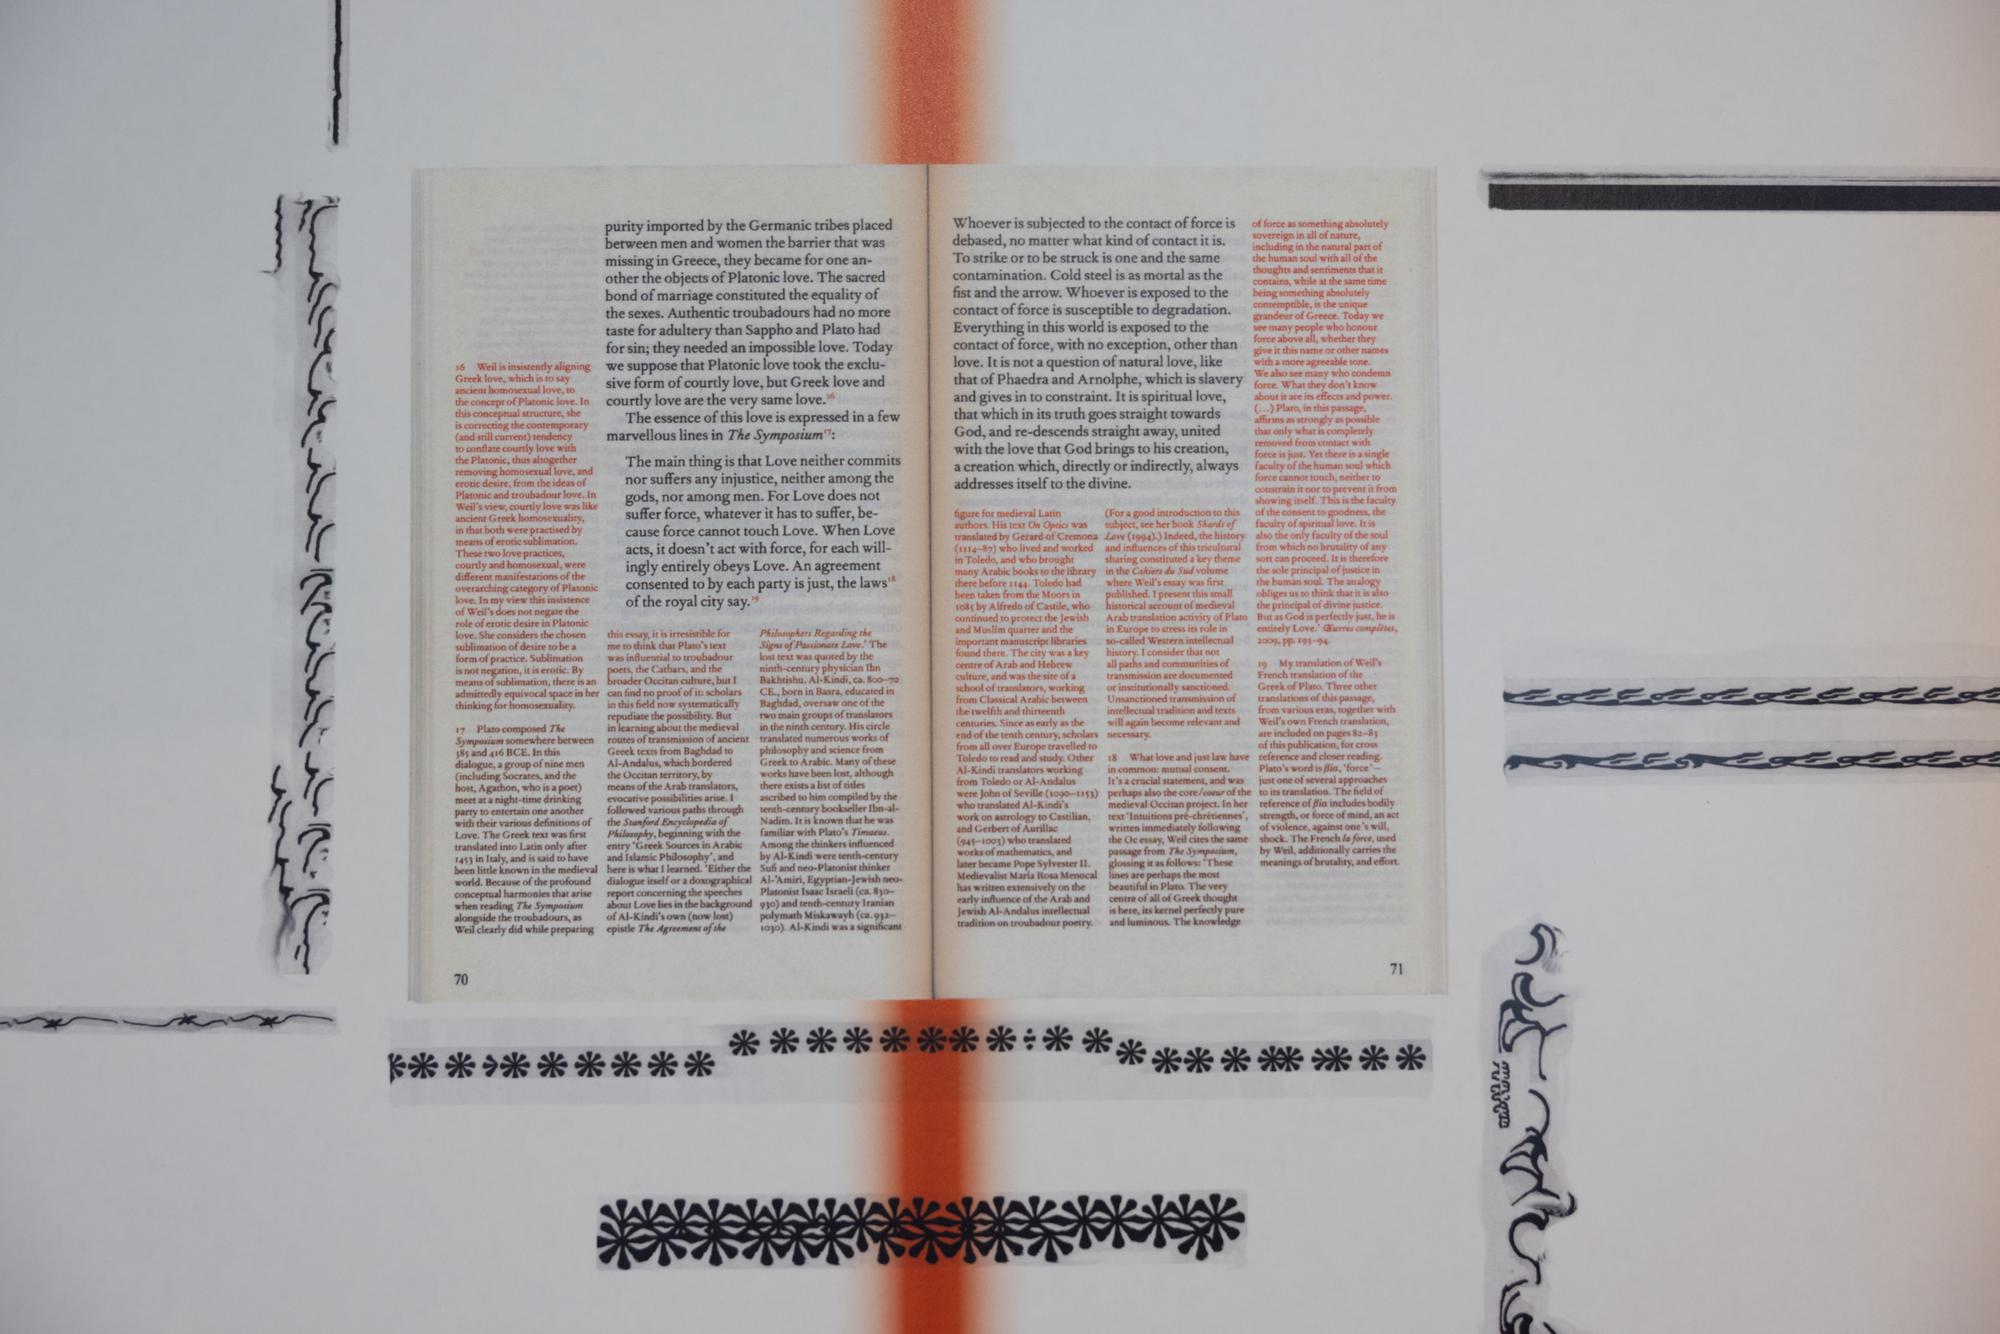 purity imported by the Germanic tribes placed
between men and women the barrier that was
missing in Greece, they became for one an-
other the objects of Platonic love. The sacred
bond of marriage constituted the equality of
the sexes. Authentic troubadours had no more
taste for adultery than Sappho and Plato had
for sin; they needed an impossible love. Today
we suppose that Platonic love took the exclu-
sive form of courtly love, but Greek love and
courtly love are the very same love.16
The essence of this love is expressed in a few
marvellous lines in The Symposium17:
The main thing is that Love neither commits
nor suffers any injustice, neither among the
gods, nor among men. For Love does not
suffer force, whatever it has to suffer, be-
cause force cannot touch Love. When Love
acts, it doesn't act with force, for each will-
ingly entirely obeys Love. An agreement
consented to by each party is just, the laws18
of the royal city say.19
16 Weil is insistently aligning
Greek love, which is to say
ancient homosexual love, to
the concept of Platonic love. In
this conceptual structure, she
is correcting the contemporary
(and still current) tendency
to conflate courtly love with
the Platonic, thus altogether
removing homosexual love, and
erotic desire, from the ideas of
Platonic and troubadour love. In
Weil's view, courtly love was like
ancient Greek homosexuality,
in that both were practised by
means of erotic sublimation.
These two love practices,
courtly and homosexual, were
different manifestations of the
overarching category of Platonic
love. In my view this insistence
of Weil's does not negate the
role of erotic desire in Platonic
love. She considers the chosen
sublimation of desire to be a
form of practice. Sublimation
is not negation, it is erotic. By
means of sublimation, there is an
admittedly equivocal space in her
thinking for homosexuality.
17 Plato composed The
Symposium somewhere between
385 and 416 BCE. In this
dialogue, a group of nine men
(including Socrates, and the
host, Agathon, who is a poet)
meet at a night-time drinking
party to entertain one another
with their various definitions of
Love. The Greek text was first
translated into Latin only after
1453 in Italy, and is said to have
been little known in the medieval
world. Because of the profound
conceptual harmonies that arise
when reading The Symposium
alongside the troubadours, as
Weil clearly did while preparing
this essay, it is irresistible for
me to think that Plato's text
was influential to troubadour
poets, the Cathars, and the
broader Occitan culture, but I
can find no proof of it: scholars
in this field now systematically
repudiate the possibility. But
in learning about the medieval
routes of transmission of ancient
Greek texts from Baghdad to
Al-Andalus, which bordered
the Occitan territory, by
means of the Arab translators,
evocative possibilities arise. I
followed various paths through
the Stanford Encyclopedia of
Philosophy, beginning with the
entry 'Greek Sources in Arabic
and Islamic Philosophy', and
here is what I learned. 'Either the
dialogue itself or a doxographical
report concerning the speeches
about Love lies in the background
of Al-Kindi's own (now lost)
epistle The Agreement of the
Philosophers Regarding the
Signs of Passionate Love.' The
lost text was quoted by the
ninth-century physician Ibn
Bakhtishu. Al-Kindi, ca. 800–70
CE., born in Basra, educated in
Baghdad, oversaw one of the
two main groups of translators
in the ninth century. His circle
translated numerous works of
philosophy and science from
Greek to Arabic. Many of these
works have been lost, although
there exists a list of titles
ascribed to him compiled by the
tenth-century bookseller Ibn-al-
Nadim. It is known that he was
familiar with Plato's Timaeus.
Among the thinkers influenced
by Al-Kindi were tenth-century
Sufi and neo-Platonist thinker
Al-'Amiri, Egyptian-Jewish neo-
Platonist Isaac Israeli (ca. 830–
930) and tenth-century Iranian
polymath Miskawayh (ca. 932–
1030). Al-Kindi was a significant
70
Whoever is subjected to the contact of force is
debased, no matter what kind of contact it is.
To strike or to be struck is one and the same
contamination. Cold steel is as mortal as the
fist and the arrow. Whoever is exposed to the
contact of force is susceptible to degradation.
Everything in this world is exposed to the
contact of force, with no exception, other than
love. It is not a question of natural love, like
that of Phaedra and Arnolphe, which is slavery
and gives in to constraint. It is spiritual love,
that which in its truth goes straight towards
God, and re-descends straight away, united
with the love that God brings to his creation,
a creation which, directly or indirectly, always
addresses itself to the divine.
figure for medieval Latin
authors. His text On Optics was
translated by Gerard of Cremona
(1114–87) who lived and worked
in Toledo, and who brought
many Arabic books to the library
there before 1144. Toledo had
been taken from the Moors in
1085 by Alfredo of Castile, who
continued to protect the Jewish
and Muslim quarter and the
important manuscript libraries
found there. The city was a key
centre of Arab and Hebrew
culture, and was the site of a
school of translators, working
from Classical Arabic between
the twelfth and thirteenth
centuries. Since as early as the
end of the tenth century, scholars
from all over Europe travelled to
Toledo to read and study. Other
Al-Kindi translators working
from Toledo or Al-Andalus
were John of Seville (1090–1153)
who translated Al-Kindi's
work on astrology to Castilian,
and Gerbert of Aurillac
(945–1003) who translated
works of mathematics, and
later became Pope Sylvester II.
Medievalist María Rosa Menocal
has written extensively on the
early influence of the Arab and
Jewish Al-Andalus intellectual
tradition on troubadour poetry.
(For a good introduction to this
subject, see her book Shards of
Love (1994).) Indeed, the history
and influences of this tricultural
sharing constituted a key theme
in the Cahiers du Sud volume
where Weil's essay was first
published. I present this small
historical account of medieval
Arab translation activity of Plato
in Europe to stress its role in
so-called Western intellectual
history. I consider that not
all paths and communities of
transmission are documented
or institutionally sanctioned.
Unsanctioned transmission of
intellectual tradition and texts
will again become relevant and
necessary.
18 What love and just law have
in common: mutual consent.
It's a crucial statement, and was
perhaps also the core/coeur of the
medieval Occitan project. In her
text 'Intuitions pré-chrétiennes',
written immediately following
the Oc essay, Weil cites the same
passage from The Symposium,
glossing it as follows: 'These
lines are perhaps the most
beautiful in Plato. The very
centre of all of Greek thought
is here, its kernel perfectly pure
and luminous. The knowledge
of force as something absolutely
sovereign in all of nature,
including in the natural part of
the human soul with all of the
thoughts and sentiments that it
contains, while at the same time
being something absolutely
contemptible, is the unique
grandeur of Greece. Today we
see many people who honour
force above all, whether they
give it this name or other names
with a more agreeable tone.
We also see many who condemn
force. What they don't know
about it are its effects and power.
(…) Plato, in this passage,
affirms as strongly as possible
that only what is completely
removed from contact with
force is just. Yet there is a single
faculty of the human soul which
force cannot touch, neither to
constrain it nor to prevent it from
showing itself. This is the faculty
of the consent to goodness, the
faculty of spiritual love. It is
also the only faculty of the soul
from which no brutality of any
sort can proceed. It is therefore
the sole principal of justice in
the human soul. The analogy
obliges us to think that it is also
the principal of divine justice.
But as God is perfectly just, he is
entirely Love.' Œuvres complètes,
2009, pp. 193–94.
19 My translation of Weil's
French translation of the
Greek of Plato. Three other
translations of this passage,
from various eras, together with
Weil's own French translation,
are included on pages 82–83
of this publication, for cross
reference and closer reading.
Plato's word is βία, 'force' –
just one of several approaches
to its translation. The field of
reference of βία includes bodily
strength, or force of mind, an act
of violence, against one's will,
shock. The French la force, used
by Weil, additionally carries the
meanings of brutality, and effort.
71